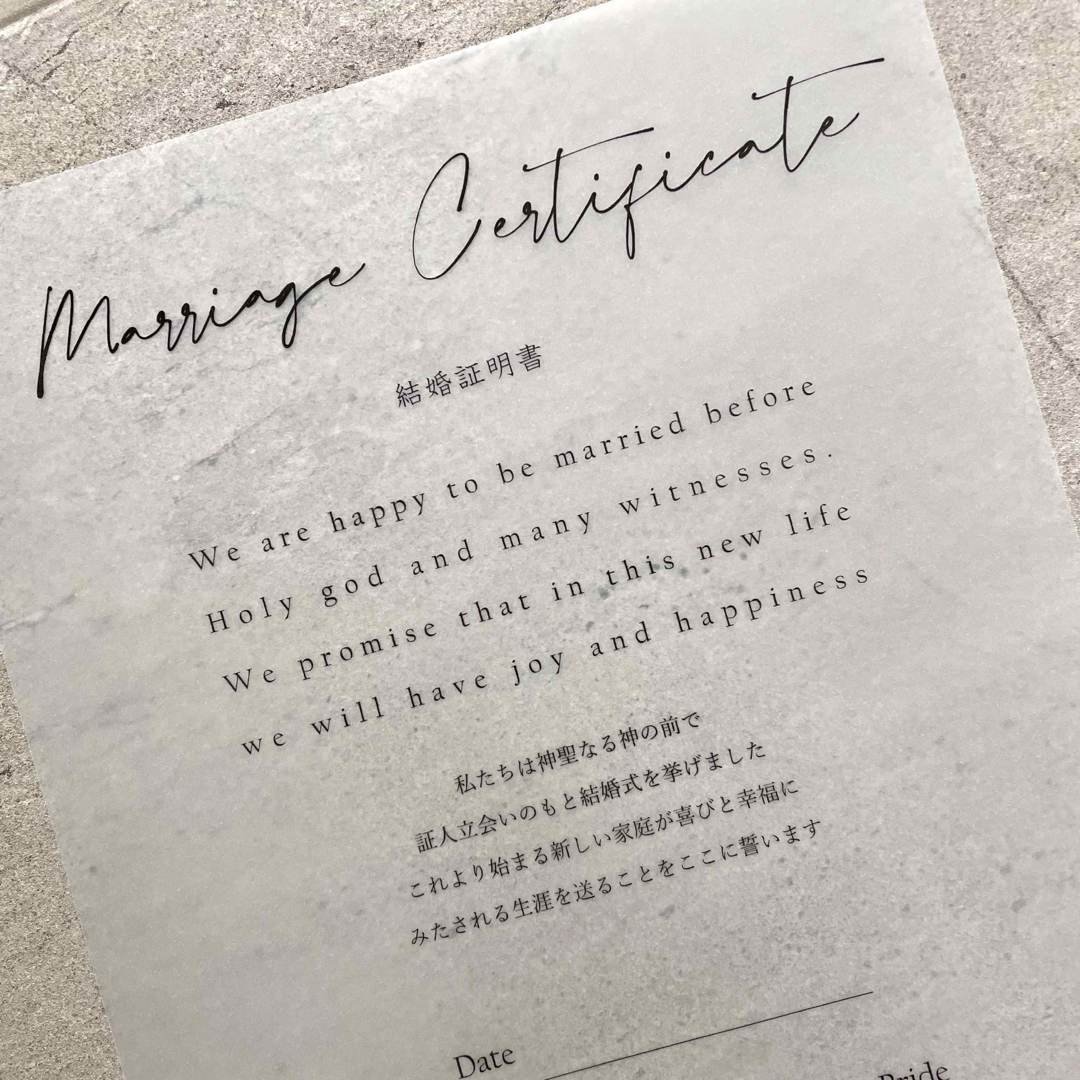 Marriage Certificate
結婚証明書
We are happy to be married before
Holy god and many witnesses.
We promise that in this new life
we will have joy and happiness
私たちは神聖なる神の前で
証人立会いのもと結婚式を挙げました
これより始まる新しい家庭が喜びと幸福に
みたされる生涯を送ることをここに誓います
Date
Bride